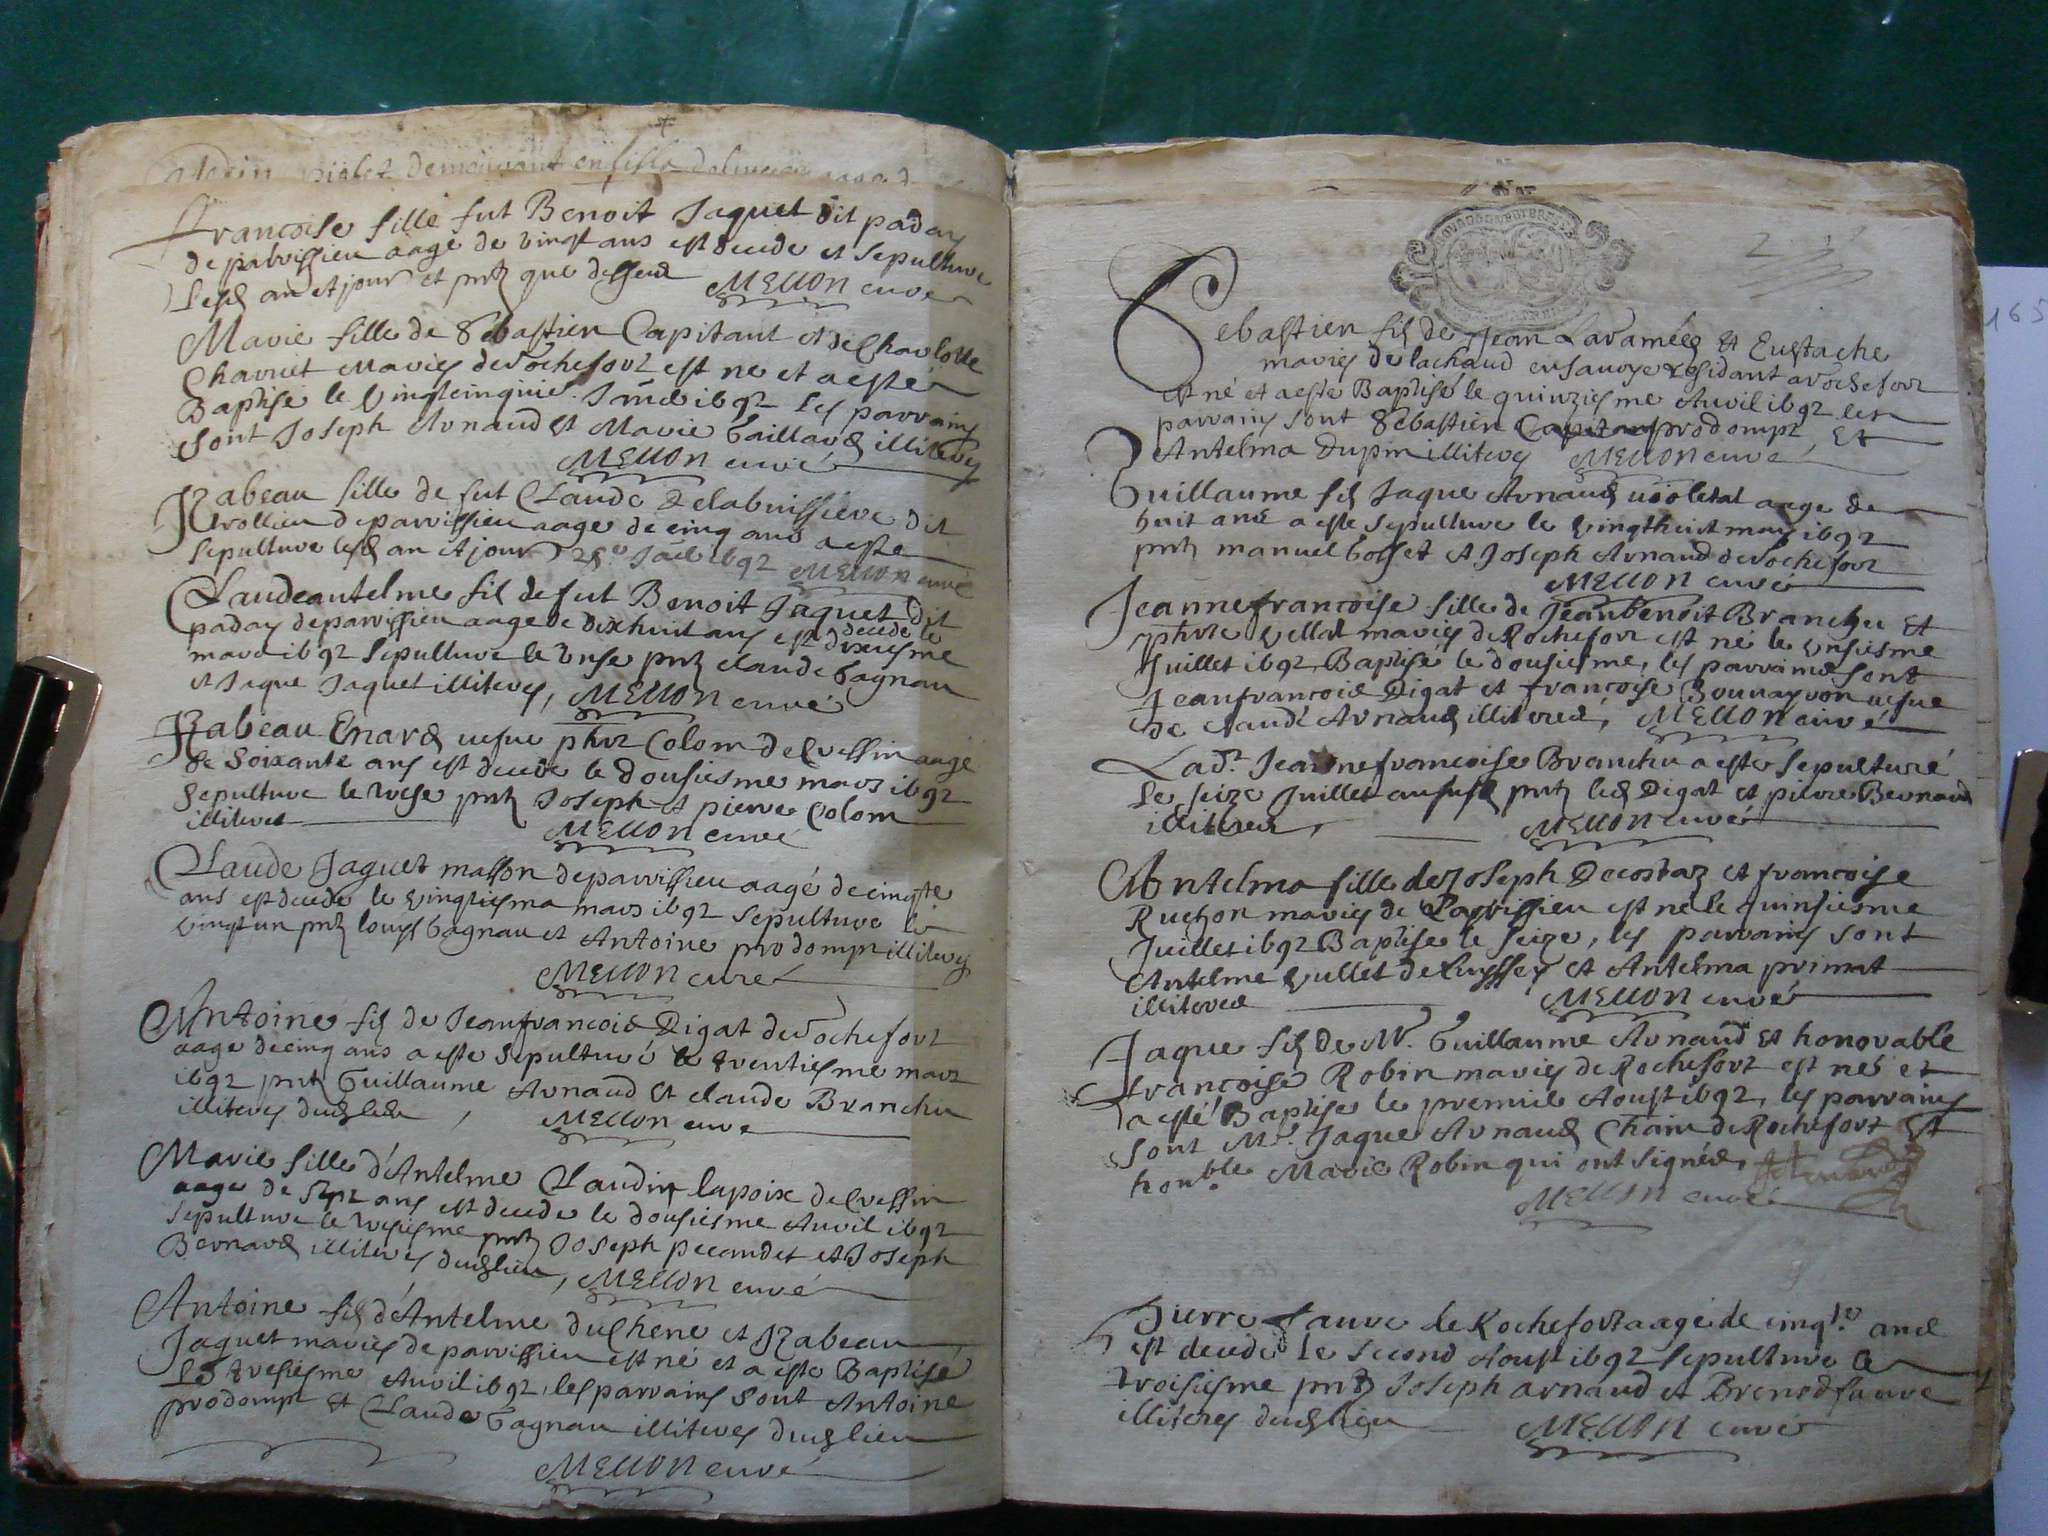 piolet demeurant en
Francoise fille fut Benoit Jaquet dit paday
de parvissieu aage de vingt ans est decede et sepulture
lesd an et jour et pntz que dessus MELLON curé
Marie fille de Sebastien Capitant et de Charlotte
Charvet maries de Rochefort est ne et a esté
Baptise le vingtcinquie. 1692 les parrains
sont Joseph Arnaud et Marie Gaillard illiteres
MELLON curé
Izabeau fille de fut Claude Delabuissiere dit
de parvissieu aage de cinq ans a este
sepulture lesd an et jour 1692 MELLON curé
Claudeantelme fil de fut Benoit Jaquet dit
paday de parvissieu aage de dixhuit ans est decede le dixiesme
mars 1692 sepulture le unse pntz claude Gagnau
et Jaque Jaquet illiteres, MELLON curé
Izabeau Enard vefue phire Colom de Cressin aagé
de soixante ans est decede le dousiesme mars 1692
sepulture le trese pntz Joseph et pierre Colom
illiteres MELLON curé
Claude Jaquet masson de parvissieu aagé de cinqte
ans est decede le vingtiesma mars 1692 sepulture le
vingtun pntz louys Gagnau et Antoine prodompt illiteres
MELLON curé
Antoine fil de Jeanfrancois Digat de Rochefort
aage de cinq ans a este sepulturé le trentiesme mars
1692 pntz Guillaume Arnaud et claude Branchu
illiteres dud lieu, MELLON curé
Marie fille d'Antelme Claudin lapoix de Cressin
aage de sept ans est decede le dousiesme Auril 1692
sepulture le tresiesme pntz Joseph pecandet et Joseph
Bernard illiteres dud lieu, MELLON curé
Antoine fil d'Antelme duchene et Izabeau
Jaquet maries de parvissieu est né et a este Baptisé
le tresiesme Auril 1692, les parvains sont Antoine
prodompt et Claude Gagnau illiteres dud lieu
MELLON curé
2
Sebastien fil de Jean Laramée et Eustache
maries de lachaud en sauoye residant a rochefort
est né et a este Baptisé le quinziesme Auril 1692 les
parvains sont Sebastien prodompt, et
Antelma Dupin illiteres MELLON curé
Guillaume fil Jaque Arnaud violetat aage de
huit ans a este sepulture le vingthuit may 1692
pntz manuel Gosset et Joseph Arnaud de rochefort
MELLON curé
Jeannefrancoise fille de Jeanbenoit Branchu et
phire vellat maries de Rochefort est né le unsiesme
Juillet 1692 Baptisé le dousiesme, les parvains sont
Jeanfrancois Digat et francoise vefue
de claude Arnaud illiteres, MELLON curé
Lad. Jeannefrancoise Branchu a este sepulturé
le seize Juillet susd pntz led Digat et pierre Bernard
illiteres, MELLON curé
Antelma fille de Joseph Decostaz et francoise
Ruezon maries de Parvissieu est né le quinsiesme
Juillet 1692 Baptise le seize, les parvains sont
Antelme vullet de luyssey et Antelma primat
illiteres MELLON curé
Jaque fil de Mr. Guillaume Arnaud et honorable
francoise Robin maries de Rochefort est né et
a esté Baptise le premie Aoust 1692, les parvains
sont Mr. Jaque Arnaud Chañe de Rochefort et
honble. Marie Robin qui ont signés,
MELLON curé
Pierre Faure de Rochefort aagé de cinqte ans
est decede le second Aoust 1692 sepulture le
troisiesme pntz Joseph arnaud et faure
illiteres dud lieu MELLON curé
165